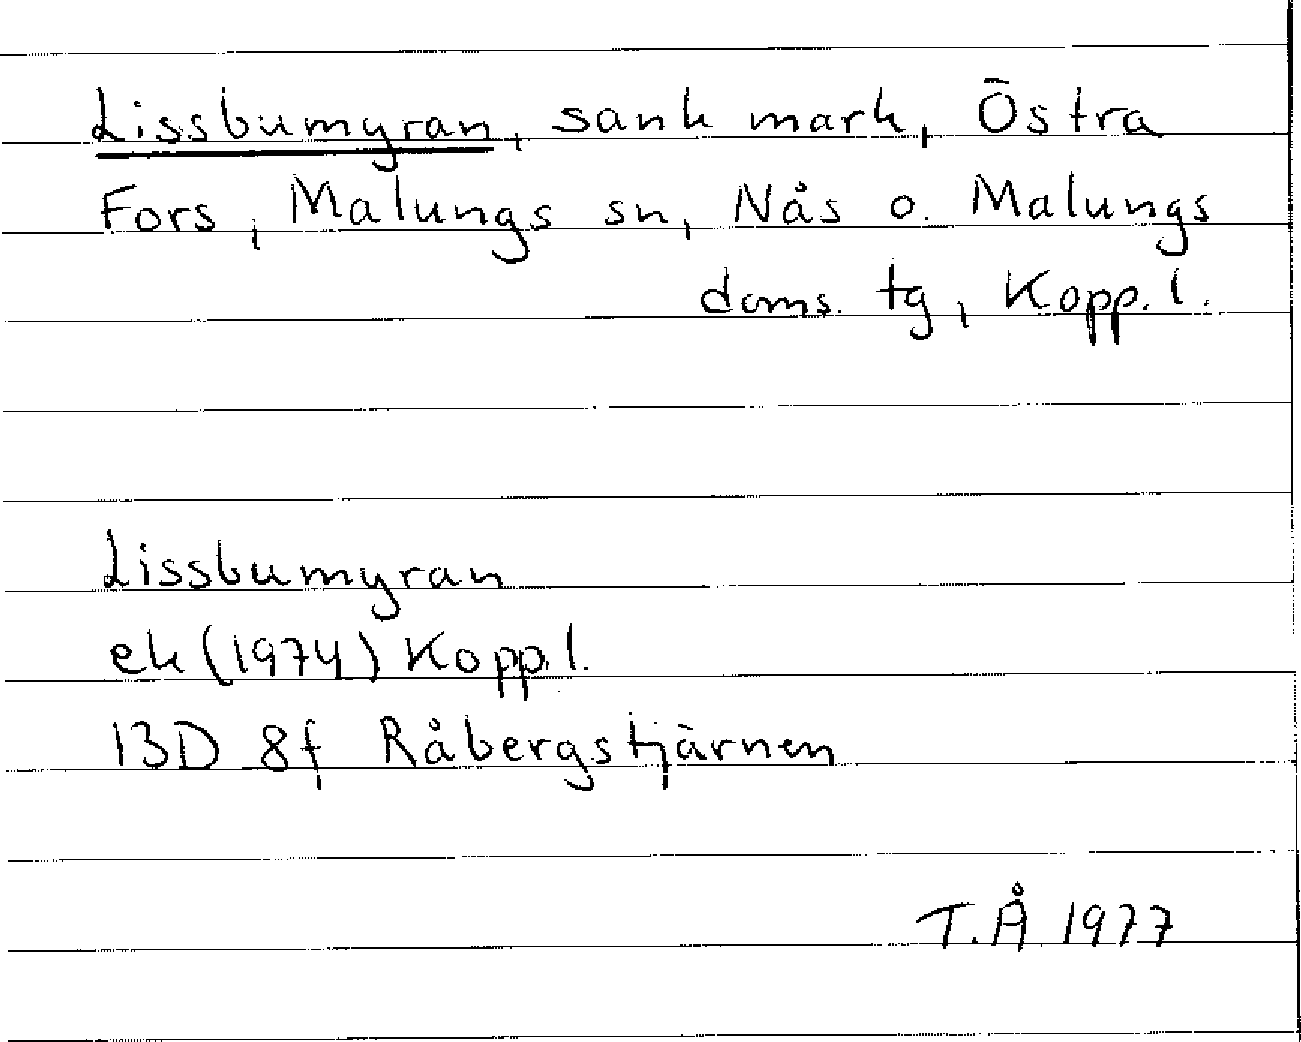 Lissbumyran, sank mark, Östra
Fors, Malungs sn, Nås o. Malungs
doms. tg, Kopp. l.
Lissbumyran
ek (1974) Kopp. l.
13D 8f Råbergstjärnen
T.Å 1977